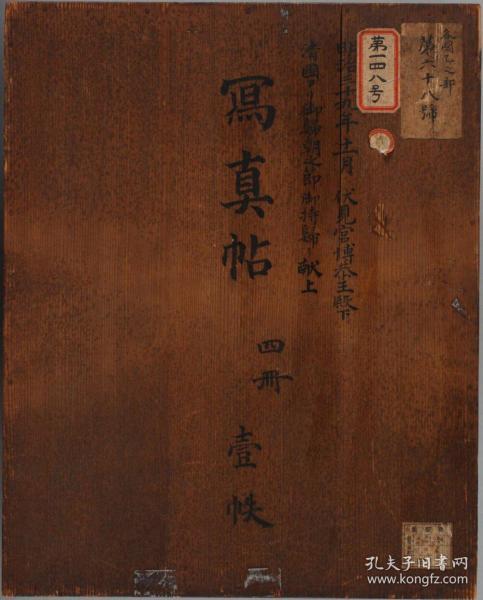 第六十八號
第一四八号
明治三十五年十一月 伏見宮博恭王殿下
清國ヨリ御歸朝之節御持歸リ献上
寫真帖
四冊
壹帙
孔夫子旧书网
www.kongfz.com